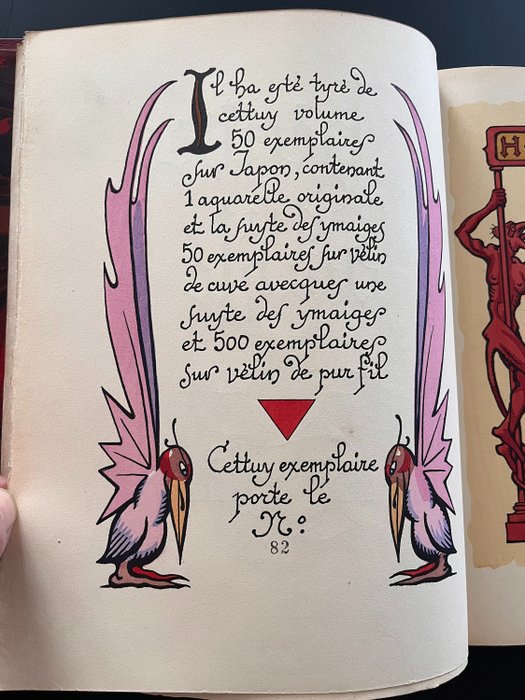 Il ha esté tyré de
cettuy volume
50 exemplaires
sur Japon, contenant
1 aquarelle originale
et la suyte des ymaiges
50 exemplaires sur vélin
de cuve avecques une
suyte des ymaiges
et 500 exemplaires
sur vélin de pur fil
Cettuy exemplaire
porte le
No:
82
H